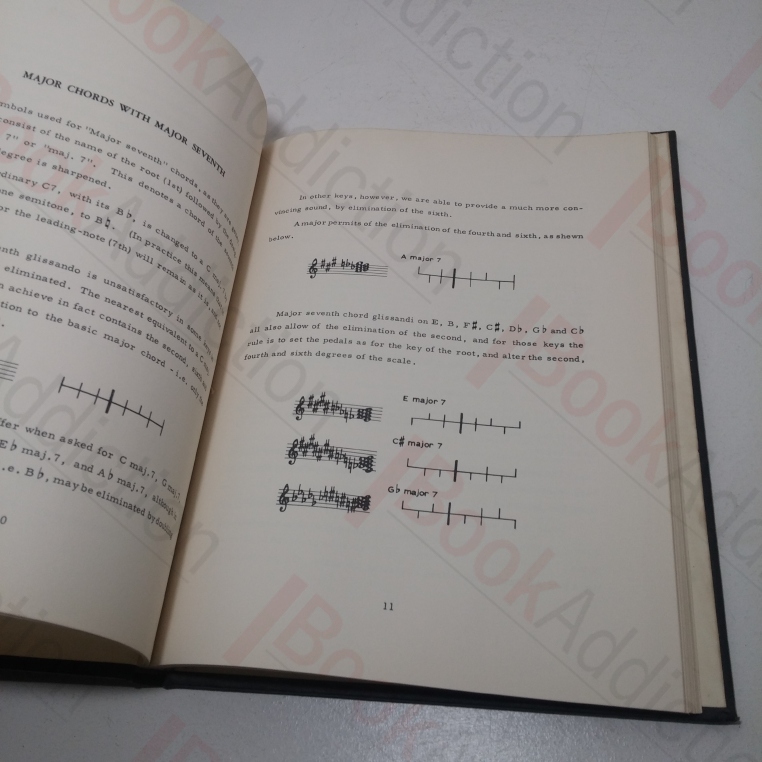 MAJOR CHORDS WITH MAJOR SEVENTH
mbols used for "Major seventh" chords, as they are
consist of the name of the root (1st) followed by the
7" or "maj. 7". This denotes a chord of the
degree is sharpened.
dinary C7, with its B♭, is changed to a C maj.
one semitone, to B♮. (In practice this means that
or the leading-note (7th) will remain as it is
nth glissando is unsatisfactory in some
eliminated. The nearest equivalent to a C
n achieve in fact contains the second, sixth
tion to the basic major chord - i.e. only the
ffer when asked for C maj.7, G maj.7
E♭ maj.7, and A♭ maj.7, although
i.e. B♭, may be eliminated by doubling
0
In other keys, however, we are able to provide a much more con-
vincing sound, by elimination of the sixth.
A major permits of the elimination of the fourth and sixth, as shewn
below.
A major 7
Major seventh chord glissandi on E, B, F♯, C♯, D♭, G♭ and C♭
all also allow of the elimination of the second, and for those keys the
rule is to set the pedals as for the key of the root, and alter the second,
fourth and sixth degrees of the scale.
E major 7
C♯ major 7
G♭ major 7
11
BookAddiction